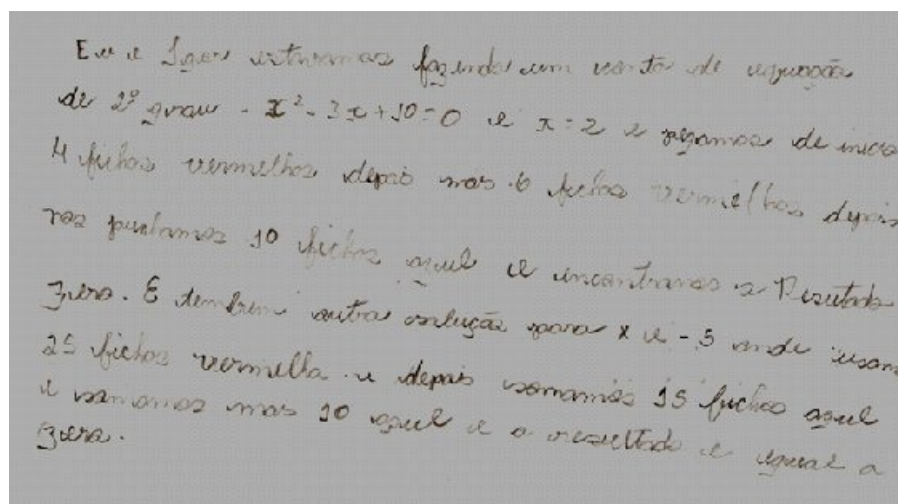 Eu e Igor estavamos fazendo um conta de equação
de 2º grau - x² - 3x + 10 = 0 e x = 2 e pegamos de inicio
4 fichas vermelhas depois mas 6 fichas vermelhas depois
nos puchamos 10 fichas azul e encontramos o Resultado
zero. E tembem outra solução para x e - 5 onde usamos
25 fichas vermelha e depois somamos 15 fichas azul
e somamos mas 10 azul e o resultado e igual a
zero.